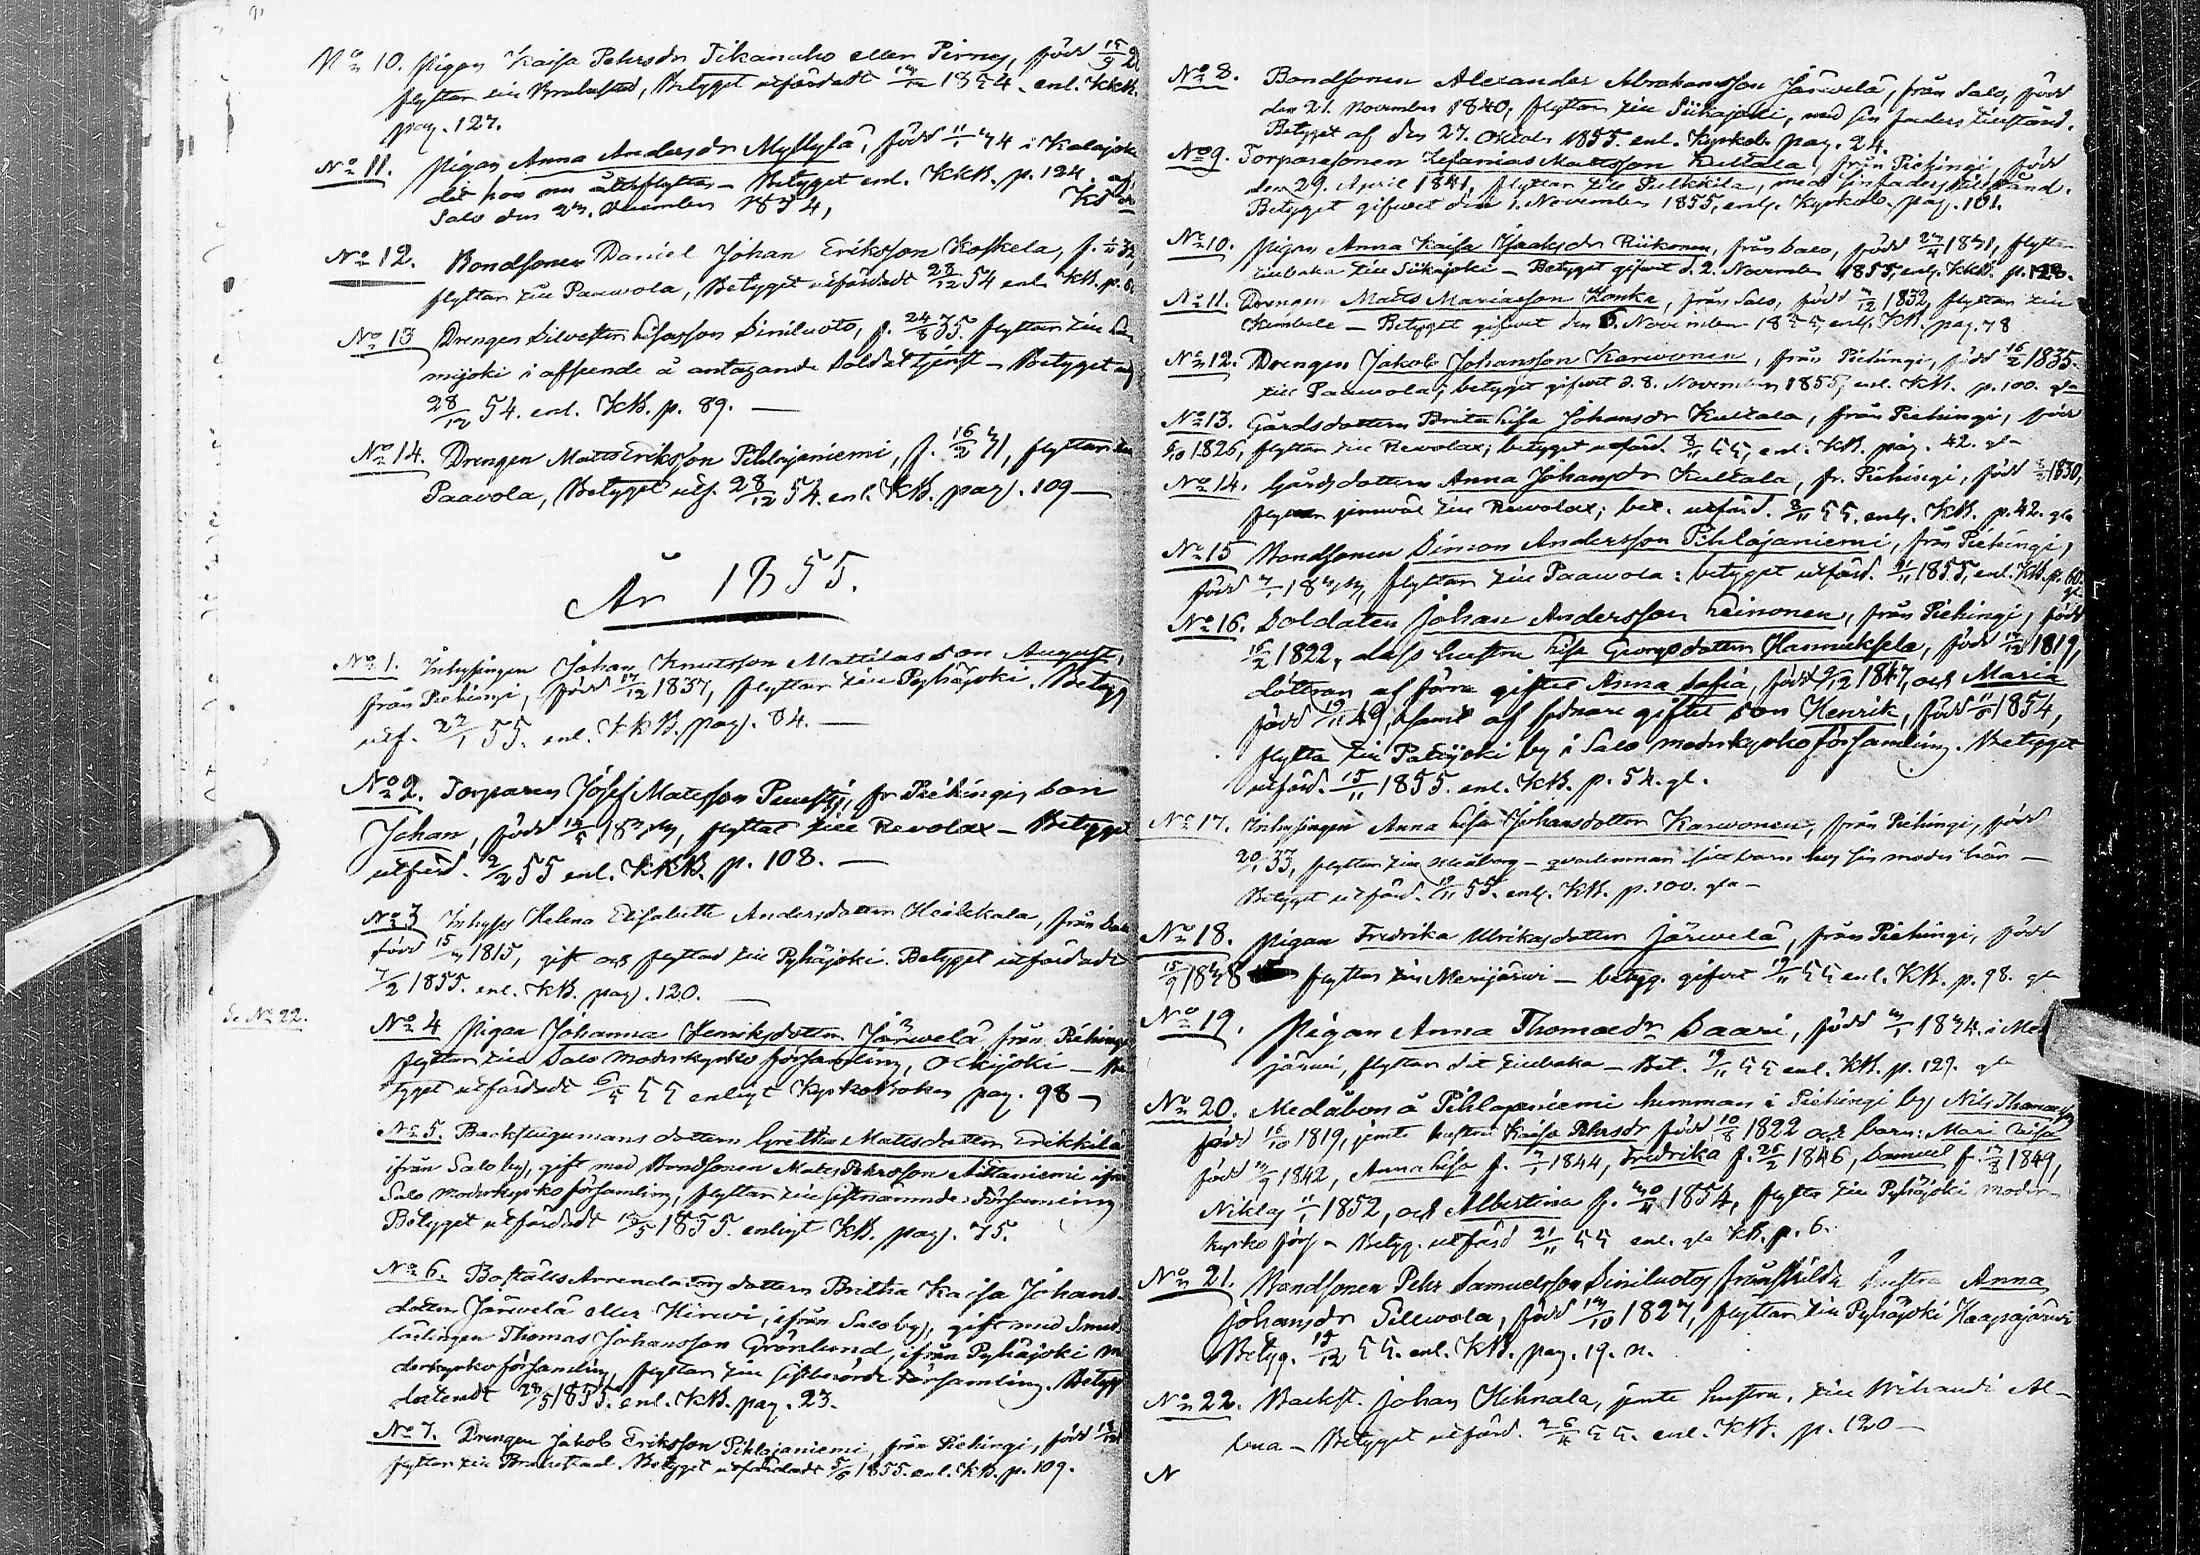 No 10. Pigan Kaisa Pehrsdr Tikanaho eller Pirney, född 15/9 2
flyttar till Brahestad, Betyget utfärdadt 1854. enl. KKB.
pag. 127.
No 11. Pigan Anna Andersdr Myllylä, född 11/1 34 i Kalajoki
dit hon nu återflyttar – Betyget enl. KKB. p. 124. af
Salo den 27. December 1854,
No 12. Bondsonen Daniel Johan Eriksson Koskela, f. 32,
flyttar till Paawola, Betyget utfärdadt 28/12 54 enl. KB. p.
No 13 Drengen Silvester Esaiasson Siniluoto, f. 24/8 35. flyttar till
mijoki i afseende å antagande Soldat tjenst – Betyget af
28/12 54. enl. KB. p. 89. —
No 14. Drengen Matts Eriksson Pihlajaniemi, f. 16/2 31, flyttar till
Paavola, Betyget utf. 28/12 54. enl. KB. pag. 109 —
År 1855.
No 1. Inhysingen Johan Knutsson Mattilas son August,
från Piehingi, född 17/12 1837, flyttar till Pyhäjoki. Betyg
utf. 22/1 55. enl. KKB. pag. 84. —
No 2. Torparen Josef Matsson Puusti, fr Piehingi, son
Johan, född 14/5 18, flyttat till Revolax – Betyget
utfärd. 2/2 55 enl. KKB. p. 108. —
No 3 Inhyses Helena Elisabeth Andersdotter Heikkala, från Salo
född 15/7 1815, gift och flyttad till Pyhäjoki. Betyget utfärdadt
7/2 1855. enl. KB. pag. 120. —
Se No 22.
No 4 Pigan Johanna Henriksdotter Järvelä från Piehingi
flyttar till Salo moderkyrko församling, Olkijoki – Be
tyget utfärdadt 6/5 55 enligt Kyrkoboken pag. 98 –
No 5. Backstugumans dottern Gretha Mattsdotter Erikkilä
ifrån Salo by, gift med Bondsonen Mats Pehrsson Aittaniemi ifrån
Salo Moderkyrko församling, flyttar till sistnämnde Församling
Betyget utfärdadt 13/5 1855. enligt KB. pag. 75.
No 6. Boställs Arrendators dottern Britha Kaisa Johans
dotter Järvelä eller Hirwi, ifrån Salo by, gift med Smeds
lärlingen Thomas Johansson Grönlund, ifrån Pyhäjoki Mo
derkyrko församling, flyttar till sistberörde Församling. Betyg
dateradt 27/5 1855. enl. KB. pag. 23.
No 7. Drengen Jakob Eriksson Pihlajaniemi, från Piehingi, född
flyttar till Brahestad. Betyget utfärdadt 1855. enl. KB. p. 109.
No 8. Bondsonen Alexander Abrahamsson Järwelä, från Salo, född
den 21. November 1840, flyttar till Siikajoki, med sin faders tillstånd.
Betyget af den 27. Oktob. 1855. enl. Kyrkob. pag. 24.
No 9. Torparesonen Zefanias Mattsson Kultala, från Piehingi, född
den 29. April 1841, flyttar till Pulkkila, med sin faders tillstånd.
Betyget gifwet den 1. November 1855, enl. Kyrkob. pag. 101.
No 10. Pigan Anna Kaisa Isaaksdr Riikonen, från Salo, född 27/4 1831, flyttar
tillbaka till Siikajoki – Betyget gifwet d. 2. November 1855, enl. KKB. p. 128.
No 11. Drengen Matts Mariasson Konka, från Salo, född /12 1832, flyttar till
Kembele – Betyget gifwet den 6. November 1855 enl. KB. pag. 78
No 12. Drengen Jakob Johansson Karwonen, från Piehingi, född 16/2 1835.
till Paawola; betyget gifwet d. 8. November 1855, enl. KB. p. 100. gla
No 13. Gårdsdottern Brita Lisa Johansdr Kultala, från Piehingi, född
6/10 1826, flyttar till Rewolax; betyget utfärd. 8/11 55, enl. KB. pag. 42. gla
No 14. Gårdsdottern Anna Johansdr Kultala, fr. Piehingi, född 1830,
flyttar jemwäl till Rewolax; bet. utfärd. 8/11 55. enl. KB. p. 42. gla
No 15 Bondsonen Simon Andersson Pihlajaniemi, från Piehingi,
född 18, flyttar till Paawola: betyget utfärd. 9/11 1855, enl. KB. p. 60. gl.
No 16. Soldaten Johan Andersson Leinonen, från Piehingi, född
16/2 1822, dess hustru Lisa Georgsdotter Hannuksela, född 1819,
döttran af förra giftet Anna Sofia, född 9/12 1847, och Maria
född 19/11 49, samt af sednare giftet son Henrik, född 1854,
flytta till Pattijoki by i Salo moderkyrkoförsamling. Betyget
utfärd. 15/11 1855. enl. KB. p. 54. gl.
No 17. Inhysingen Anna Lisa Johansdotter Karwonen, från Piehingi, född
20/1 33, flyttar till Uleåborg – qvarlemnar sitt barn hos sin moder här –
Betyget utfärd. 19/11 55. enl. KB. p. 100. gla –
No 18. Pigan Fredrika Ulrikasdotter Järwelä, från Piehingi, född
15/9 1838 flyttar till Merijärwi – betyg. gifwet 19/11 55 enl. KB. p. 98. gla
No 19. Pigan Anna Thomasdr Saari, född 1834. i Me
järwi, flyttar dit tillbaka – Bet. 19/11 55 enl. KB. p. 127. gla
No 20. Medåbon å Pihlajaniemi hemman i Piehingi by Nils Thomasson
född 16/10 1819, jemte hustru Kaisa Pehrsdr född 10/8 1822 och barn: Mari Lisa
född 1842, Anna Lisa f. 1844, Fredrika f. 21/2 1846, Samuel f. 17/8 1849,
Niklas 11/1 1852, och Albertina f. 1854, flytta till Pyhäjoki moder-
kyrko förs. – Betyg. utfärd 21/11 55 enl. gla KB. p. 6.
No 21. Bondsonen Pehr Samuelsson Siniluotos frånskilda hustru Anna
Johansdr Sillwola, född 17/10 1827, flyttar till Pyhäjoki Haapajärwi
Betyg. 15/12 55. enl. KB. pag. 19. n.
No 22. Backst. Johan Kihnala, jemte hustru, till Wihandi Al-
bua – Betyget utfärd. 26/11 55. enl. KB. p. 120 –
N